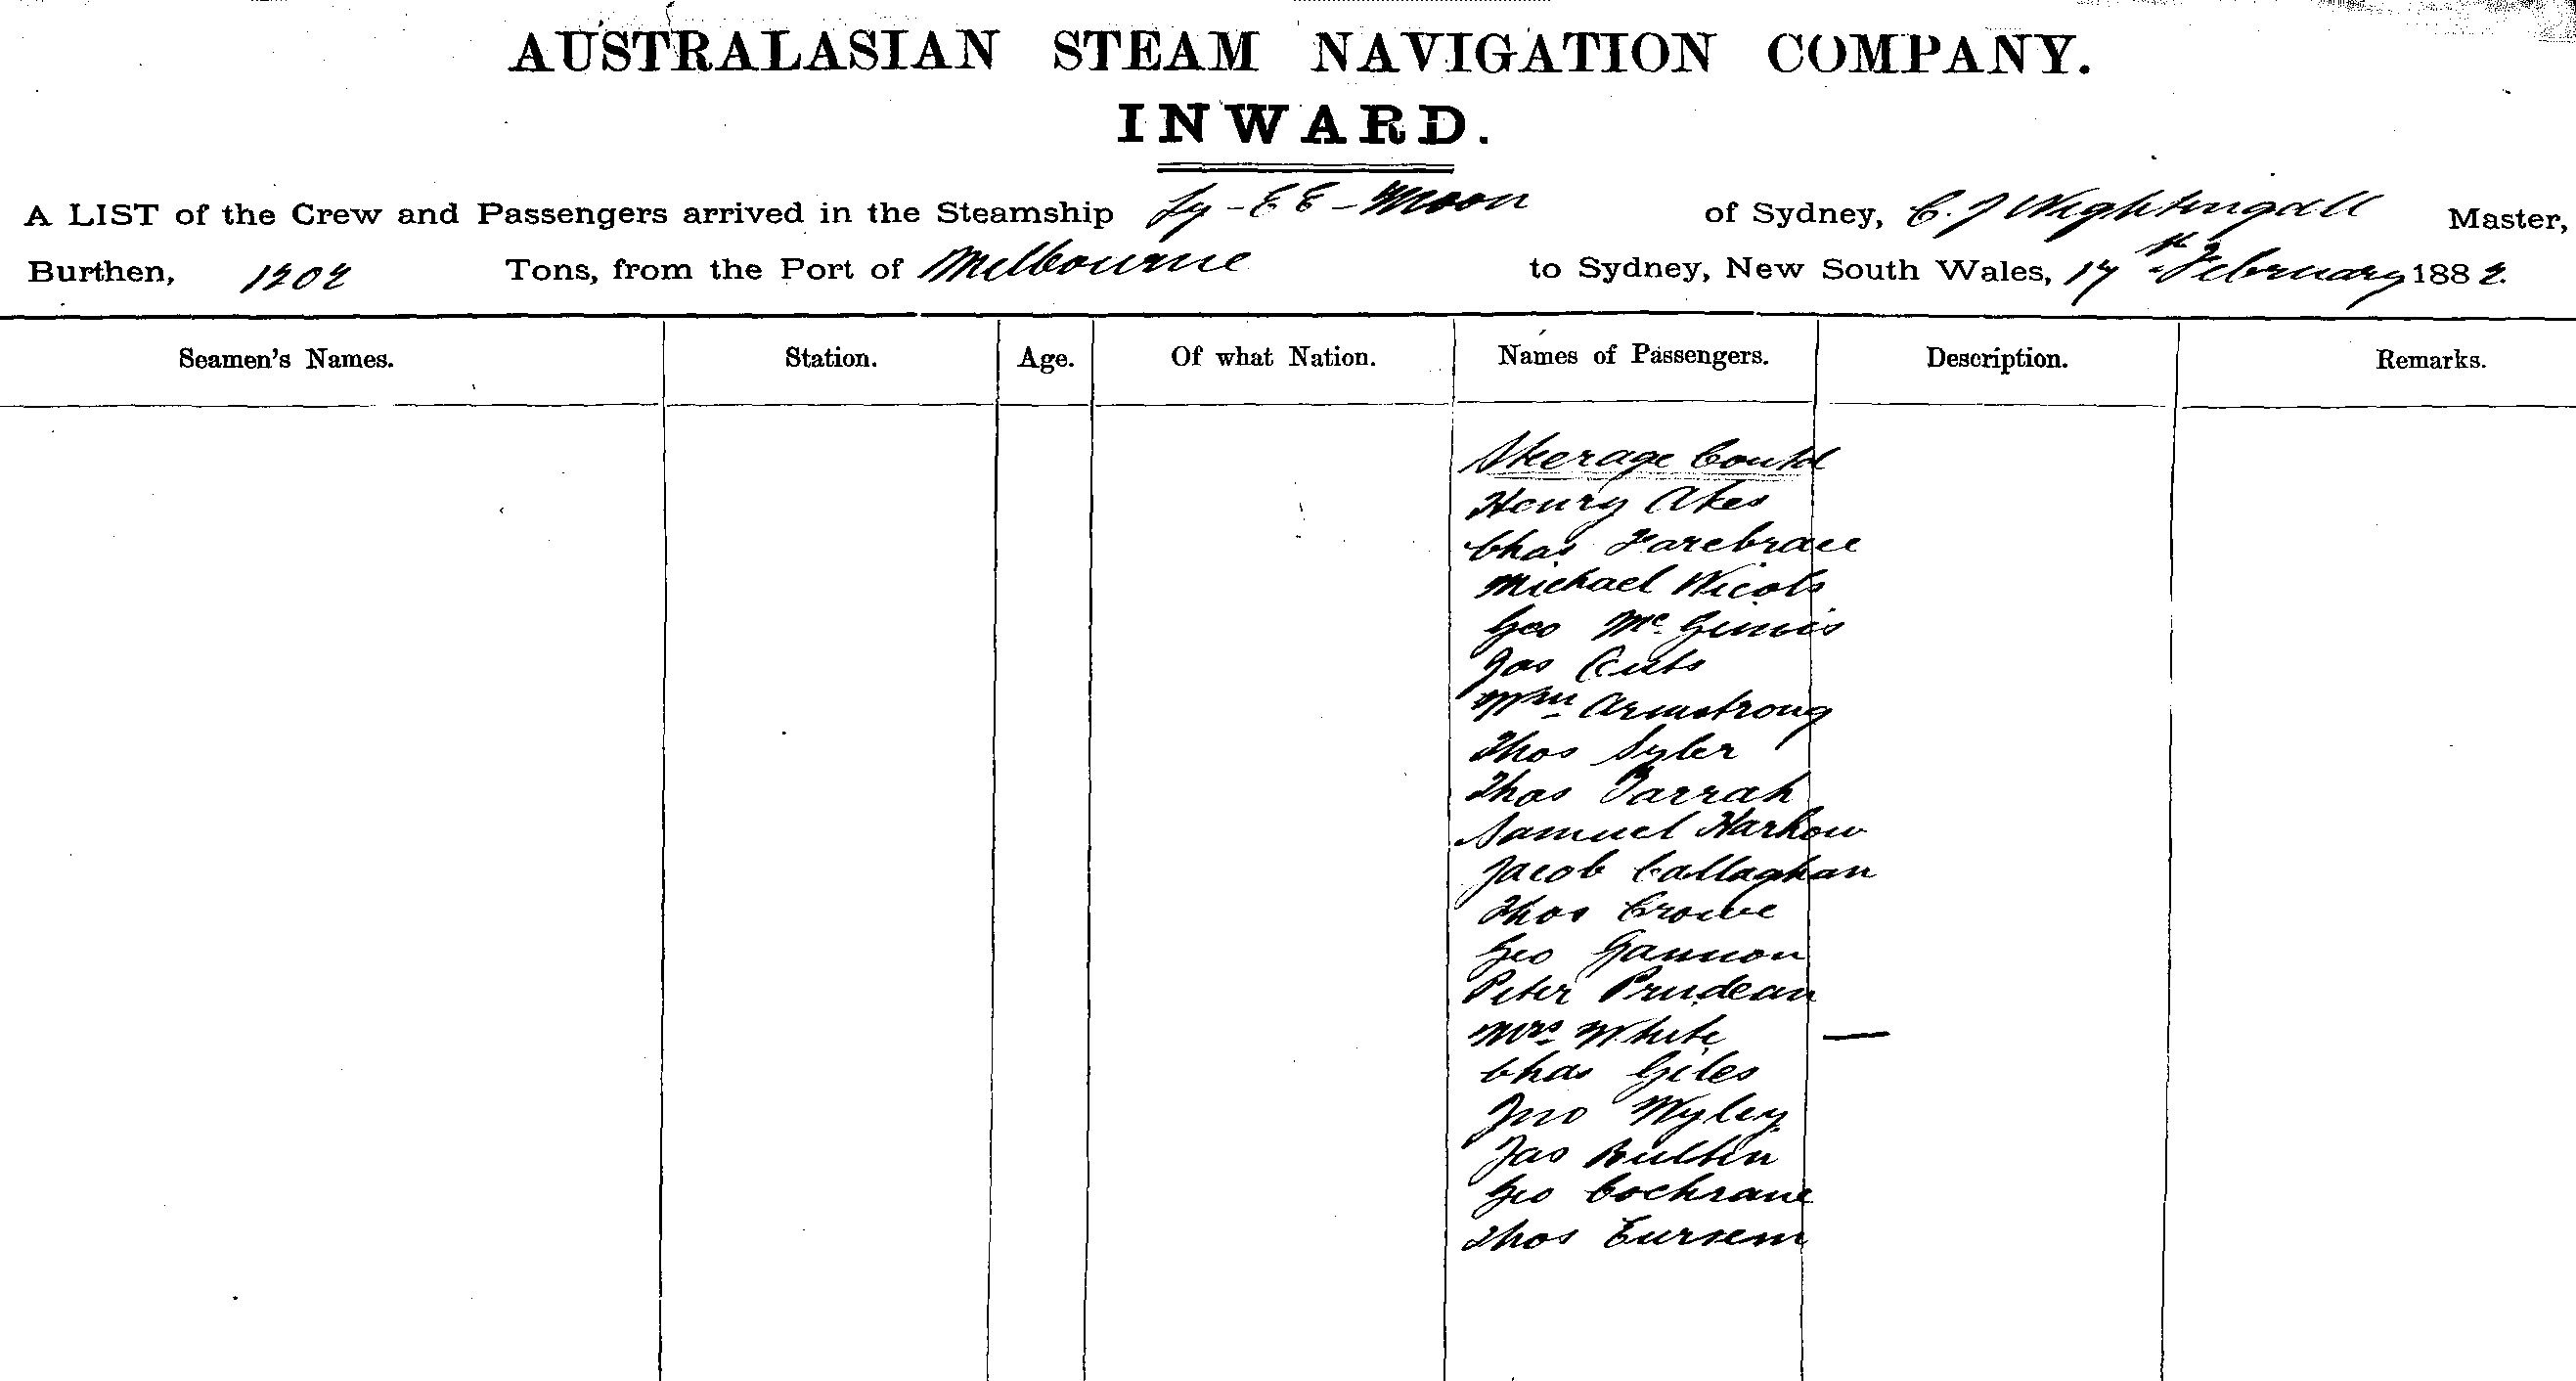 AUSTRALASIAN STEAM NAVIGATION COMPANY.
INWARD.
A LIST of the Crew and Passengers arrived in the Steamship Ly-EE-Moon of Sydney, C. J Nightingall Master,
Burthen, 1202 Tons, from the Port of Melbourne to Sydney, New South Wales, 17th February 1882.
Seamen's Names. Station. Age. Of what Nation. Names of Passengers. Description. Remarks.
Steerage Contd
Henry Akes
Chas Farebrace
Michael Nicols
Geo McGinnis
Jas Cuts
Wm Armstrong
Thos Syler
Thos Tarrah
Samuel Harkow
Jacob Callaghan
Thos Crowe
Geo Gannon
Peter Prudean
Mrs White —
Chas Giles
Jno Wyley
Jas
Geo Cochrane
Thos